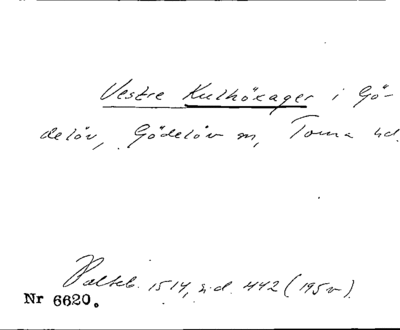 Vestre Kulhöxager i Gö-
delöv, Gödelöv sn, Torna hd.
Palteb. 1514, sid. 442 (195 v).
Nr 6620.